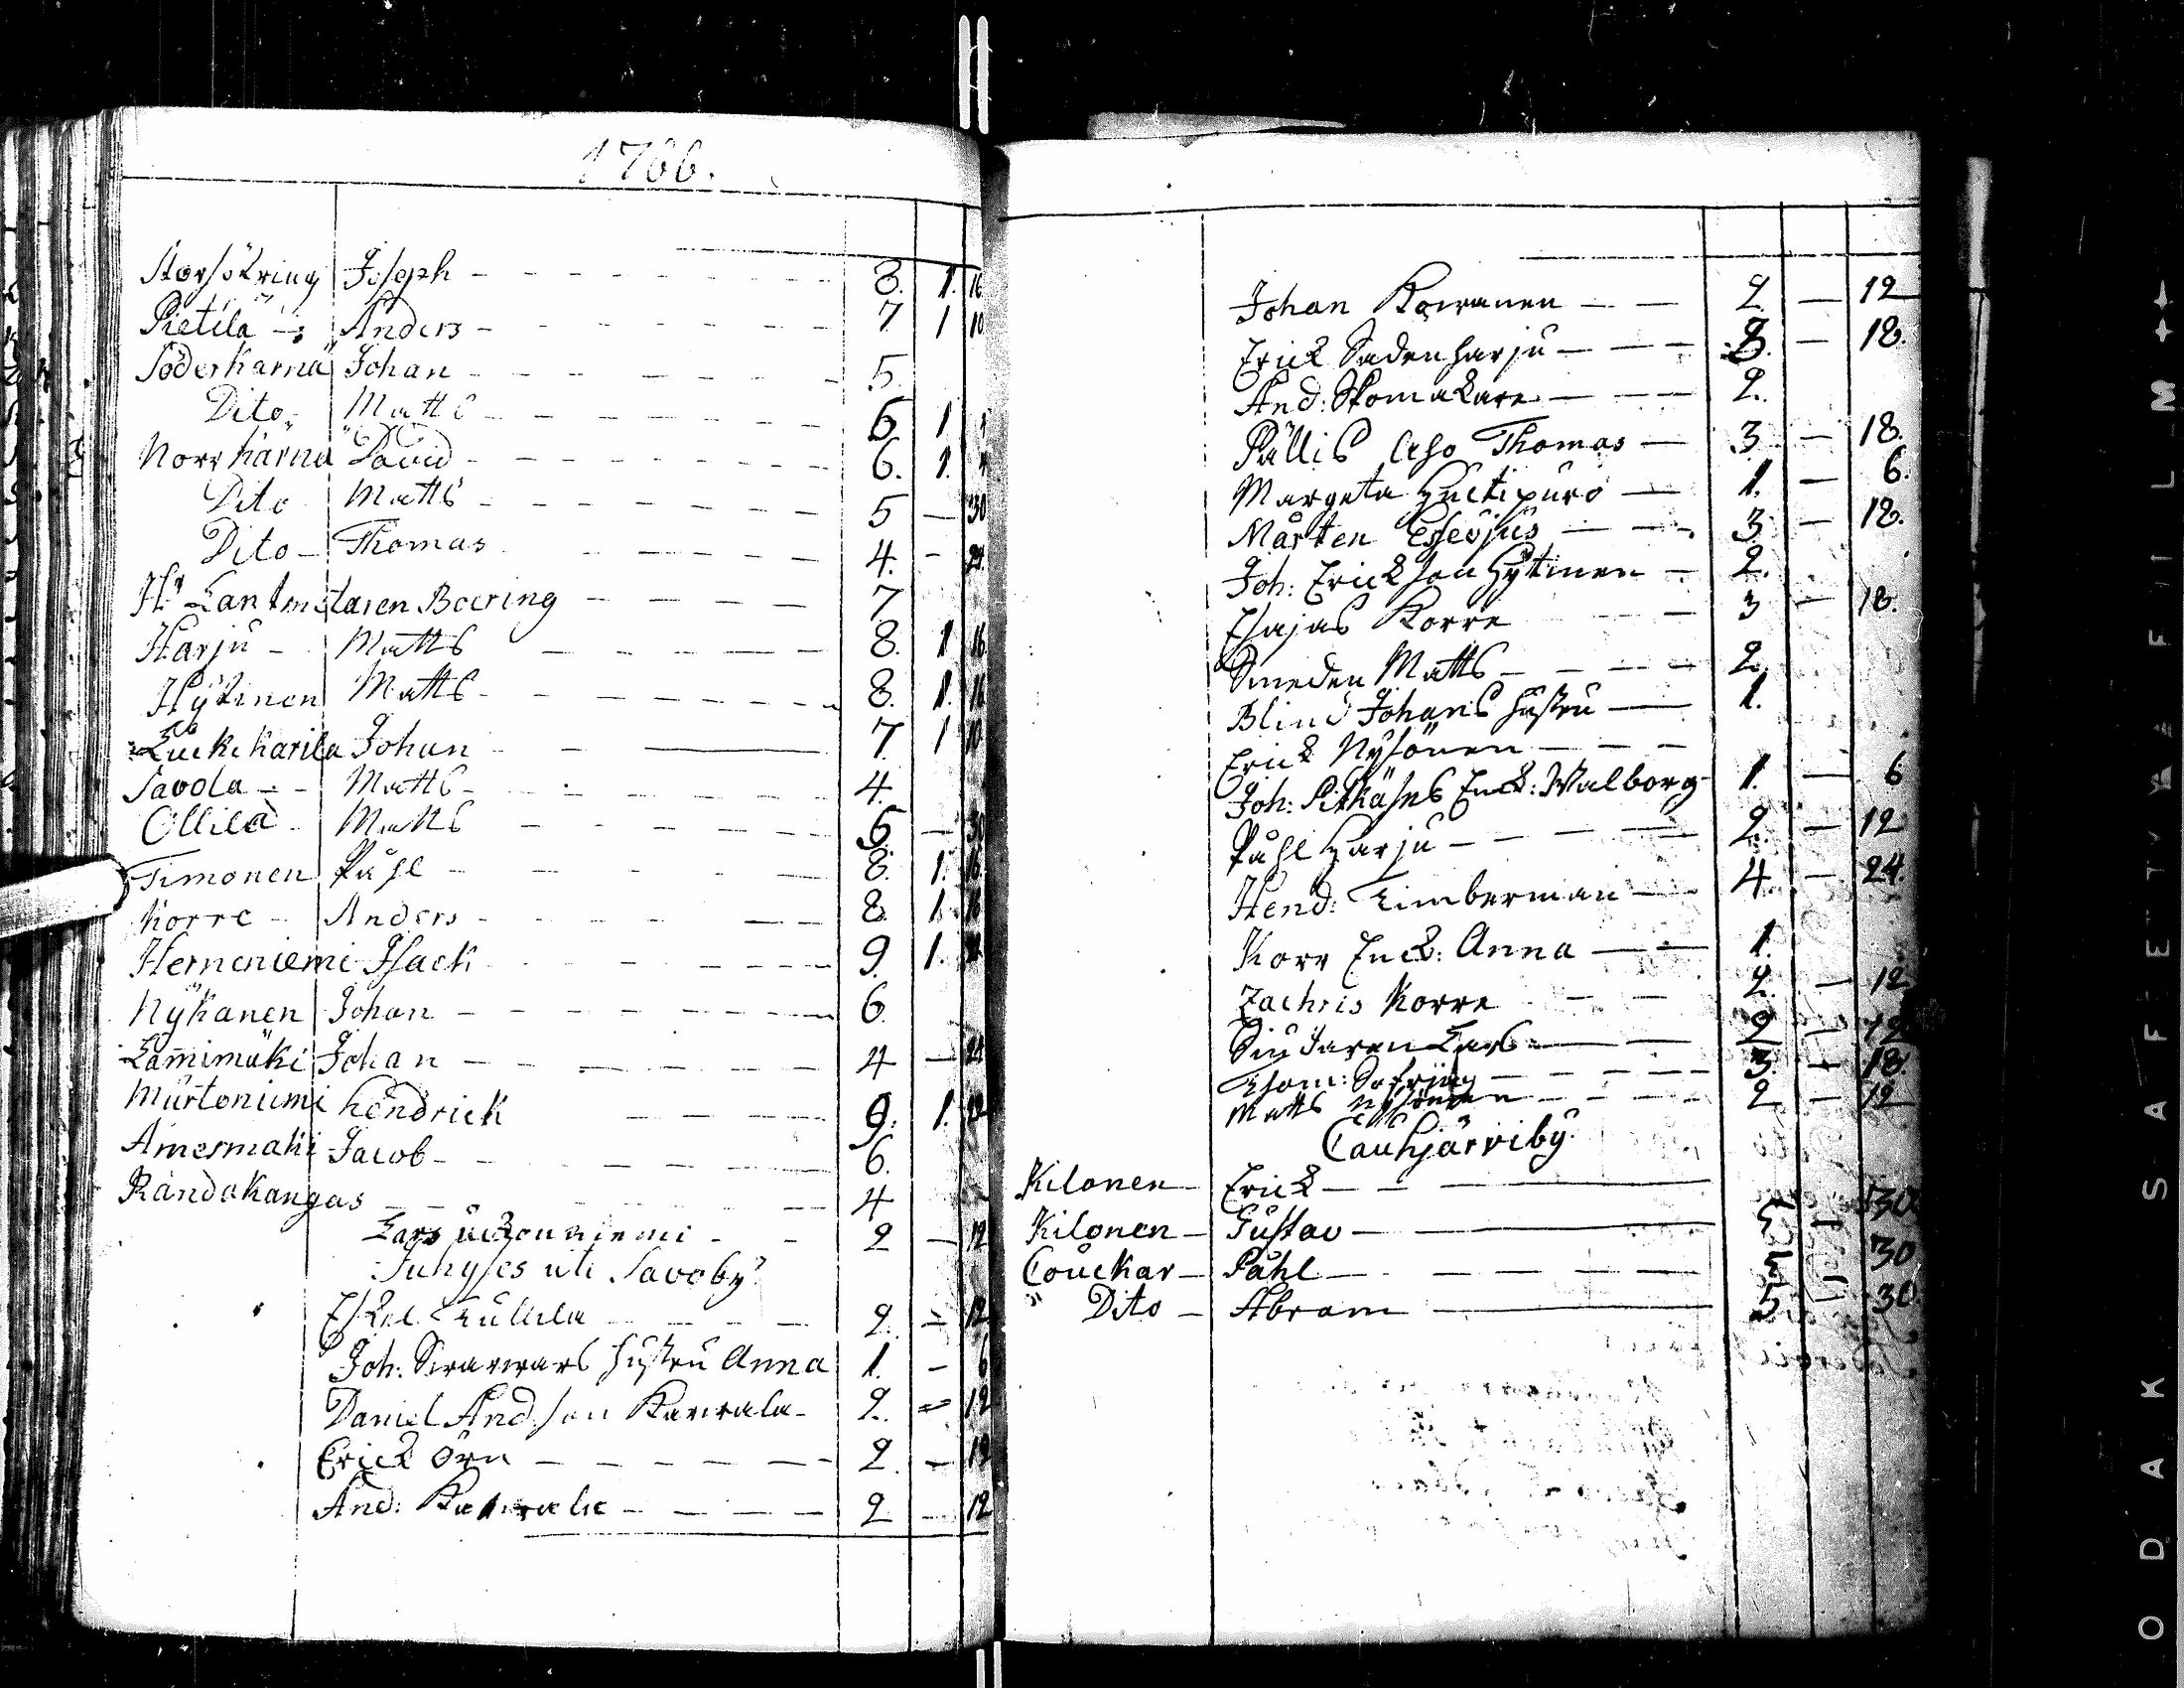 1766.
Storsökring Joseph - - - - - - - 8. 1. 16
Pietilä - Anders - - - - - - - 7 1 10
Söderkärnä Johan - - - - - - - 5
Dito Matts - - - - - - - 6 1
Norrkärnä David - - - - - - - 6. 1.
Dito Matts - - - - - - - 5 — 30
Dito - Thomas - - - - 4. - 24.
Hr Lantmetaren Boering - - - - 7
Harju - Matts - - - - - 8. 1 16
Hytinen Matts - - - - - - - 8. 1. 16
Luckekarila Johan - - — 7. 1 10
Savola - - Matts - - - - - - 4.
Ollila Matts - - - - - - 5. — 30
Timonen Påhl - - - - - 8. 1. 16.
Korre - Anders - - - - - 8. 1. 16
Herneniemi Isack - - - - - - 9. 1.
Nykänen Johan - - - - - - - 6.
Lamimäki Johan - - - - - - 4 — 24
Murtoniemi hendrick - - - - 9. 1.
Amesmäki Jacob - - - - - - 6.
Randakangas - - - - - - 4
Lars - - 2 — 12
Inhyses uti Savoby
Eskel - - - - 2. - 12
Joh: hustru Anna 1. - 6
Daniel And:son Karvala - 2. = 12
Erick Örn - - - - - - 2. - 12
And: - - - - 2 12
Johan - - 2 — 12
Erick Sadenharju - - - 3. — 18.
And: Skomakare - - - 2.
Pällis Aho Thomas — 3 — 18.
Margeta — 1. — 6.
Mårten - - - 3. — 18.
Joh: Erickson Hytinen - 2.
Esajas Korre - - 3 — 18.
Smeden Matts - - - - 2.
Blind Johans hustru — 1.
Erick Nysönen - - -
Joh: Pitkäsns Enck: Walborg - 1. — 6
Påhl Harju - - - - 2. — 12
Hend: Timberman - - 4 - 24.
Korr Enck: Anna - - 1.
Zachris Korre - - 2. — 12
Lars - — 2 — 12
Thom: - - - - - 3. - 18.
Matts Nysönen - - - - 2 — 12
Cauhjärviby.
Kilonen - Erick - - —
Kilonen - Gustav - — 5 30
Couckar - Påhl - - - - - 5 30
Dito - Abram — 5 30
ODAK SAFETY FILM